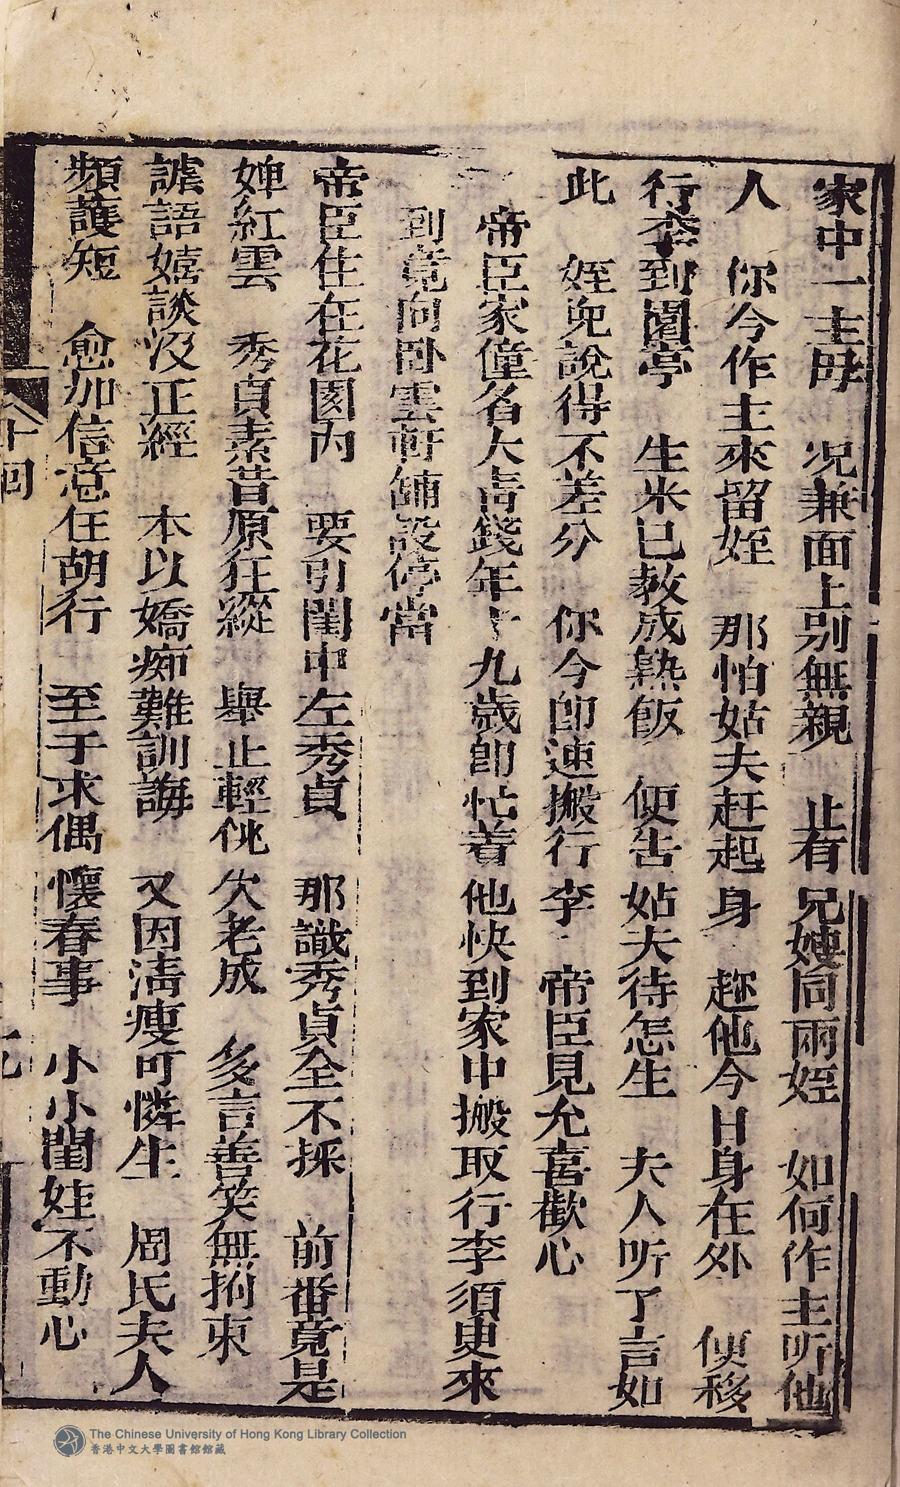 家中一主母　况兼面上别無親　止有兄嫂同兩姪　如何作主听他
人　你今作主來留姪　那怕姑夫赶起身　趂他今日身在外　便移
行李到園亭　生米已教成熟飯　便告姑夫待怎生　夫人听了言如
此　姪兒說得不差分　你今卽速搬行李　帝臣見允喜歡心
帝臣家僮名大青錢年十九歲卽忙着他快到家中搬取行李須臾來
到竟向卧雲軒舖設停當
帝臣住在花園內　要引閨中左秀貞　那識秀貞全不採　前番竟是
婢紅雲　秀貞素昔原狂縱　舉止輕佻欠老成　多言善笑無拘束
謔語嬉談没正經　本以嬌痴難訓誨　又因淸瘦可憐生　周氏夫人
頻護短　愈加信意任胡行　至于求偶懷春事　小小閨娃不動心
十回
九
The Chinese University of Hong Kong Library Collection
香港中文大學圖書館館藏